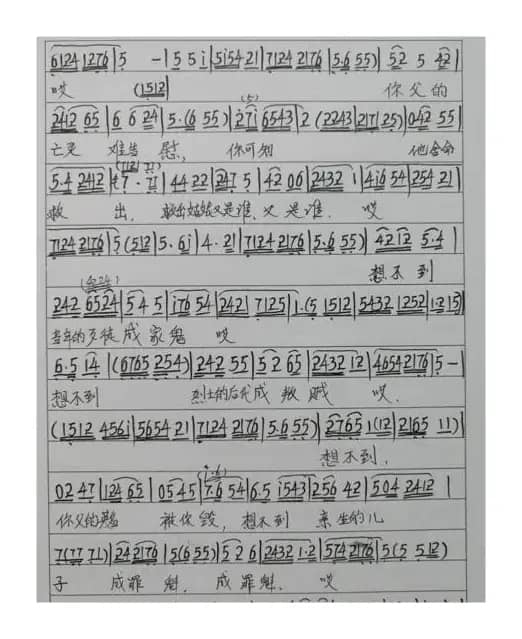 6124 1276 | 5 - | 5 5 i | 5i54 21 | 7124 2176 | 5.6 55) | 52 5 42 |
哎 (1512 你父的
2412 65 | 6 6 24 | 5.(6 55) | 27i 6543 | 2 (2243 | 217 25) | 042 55 |
亡灵 难告慰, 你可知 他舍命
5.4 2412 | 7. | 44 22 | 247 5 | 42 06 | 2432 1 | 4i6 54 | 254 21 |
救 出, 救出姑娘又是谁, 又是谁. 哎
7124 2176 | 5 (512 | 5.6i | 4.21 | 7124 2176 | 5.6 55) | 4212 5.4 |
想不到
242 6524 | 5 4 5 | i76 54 | 242 | 7125 | 1.(5 1512 | 5432 1252 | 1.2 15)
当年的歹徒成家鬼 哎
6.5 i4 | (6765 254) | 242 55 | 5 2 65 | 2432 12 | 4654 2176 | 5 - |
想不到 烈士的后代成叛贼 哎.
(1512 456i | 5654 21 | 7124 2176 | 5.6 55) | 2765 1(12 | 2165 11) |
想不到,
02 47 | 124 65 | 05 45 | 7.6 54 | 6.5 i543 | 256 42 | 504 2412 |
你父的 被你毁, 想不到 亲生的儿
7(77 71) | 24 2176 | 5(6 55) | 5 2 6 | 2432 1.2 | 574 2176 | 5(5 5 12)
子 成罪魁, 成罪魁. 哎